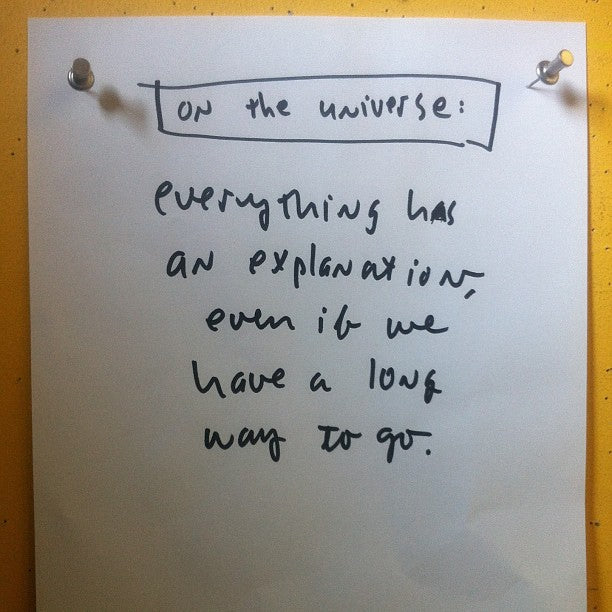 on the universe:
everything has
an explanation,
even if we
have a long
way to go.